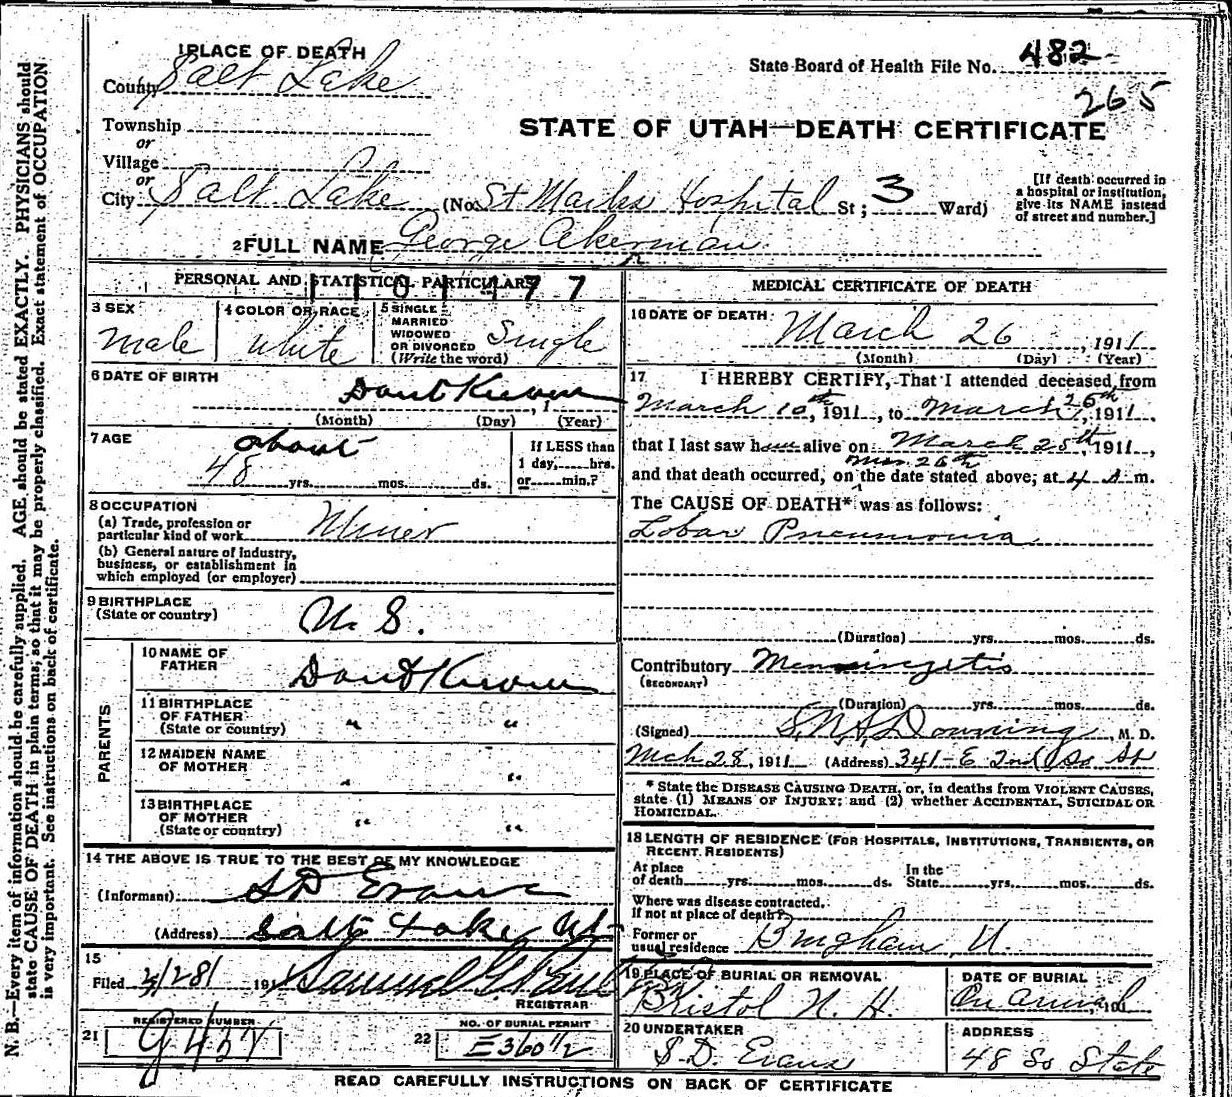 1 PLACE OF DEATH
County Salt Lake
State Board of Health File No. 482
265
Township
or
Village
or
STATE OF UTAH—DEATH CERTIFICATE
City Salt Lake (No. St Marks Hospital St; 3 Ward)
[If death occurred in
a hospital or institution,
give its NAME instead
of street and number.]
2 FULL NAME George Akerman
PERSONAL AND STATISTICAL PARTICULARS
3 SEX
male
4 COLOR OR RACE
white
5 SINGLE
MARRIED
WIDOWED
OR DIVORCED
(Write the word)
Single
6 DATE OF BIRTH
Dont Know , 1
(Month) (Day) (Year)
7 AGE
about
48 yrs. mos. ds.
If LESS than
1 day, hrs.
or min.?
8 OCCUPATION
(a) Trade, profession or
particular kind of work Miner
(b) General nature of Industry,
business, or establishment in
which employed (or employer)
9 BIRTHPLACE
(State or country)
U. S.
PARENTS
10 NAME OF
FATHER
Dont Know
11 BIRTHPLACE
OF FATHER
(State or country)
" "
12 MAIDEN NAME
OF MOTHER
" "
13 BIRTHPLACE
OF MOTHER
(State or country)
" "
14 THE ABOVE IS TRUE TO THE BEST OF MY KNOWLEDGE
(Informant) S D Evans
(Address) Salt Lake Ut
15
Filed 3/28/ 191
REGISTRAR
21 REGISTERED NUMBER
G 457
22 NO. OF BURIAL PERMIT
E360 1/2
MEDICAL CERTIFICATE OF DEATH
16 DATE OF DEATH
March 26 , 1911
(Month) (Day) (Year)
17 I HEREBY CERTIFY, That I attended deceased from
March 10th, 1911, to March 26th, 1911,
that I last saw him alive on March 25th, 1911,
Mar 26th
and that death occurred, on the date stated above, at 4 A m.
The CAUSE OF DEATH* was as follows:
Lobar Pneumonia
(Duration) yrs. mos. ds.
Contributory
(SECONDARY)
(Duration) yrs. mos. ds.
(Signed) Downing, M. D.
Mch 28, 1911 (Address) 341-E 2nd So St
* State the DISEASE CAUSING DEATH, or, in deaths from VIOLENT CAUSES,
state (1) MEANS OF INJURY; and (2) whether ACCIDENTAL, SUICIDAL OR
HOMICIDAL.
18 LENGTH OF RESIDENCE (FOR HOSPITALS, INSTITUTIONS, TRANSIENTS, OR
RECENT RESIDENTS)
At place
of death yrs. mos. ds.
In the
State yrs. mos. ds.
Where was disease contracted,
if not at place of death?
Former or
usual residence Bingham U.
19 PLACE OF BURIAL OR REMOVAL
Bristol N. H.
DATE OF BURIAL
On Arrival, 191
20 UNDERTAKER
S. D. Evans
ADDRESS
48 So State
READ CAREFULLY INSTRUCTIONS ON BACK OF CERTIFICATE
N. B.—Every item of information should be carefully supplied. AGE should be stated EXACTLY. PHYSICIANS should
state CAUSE OF DEATH in plain terms, so that it may be properly classified. Exact statement of OCCUPATION
is very important. See instructions on back of certificate.